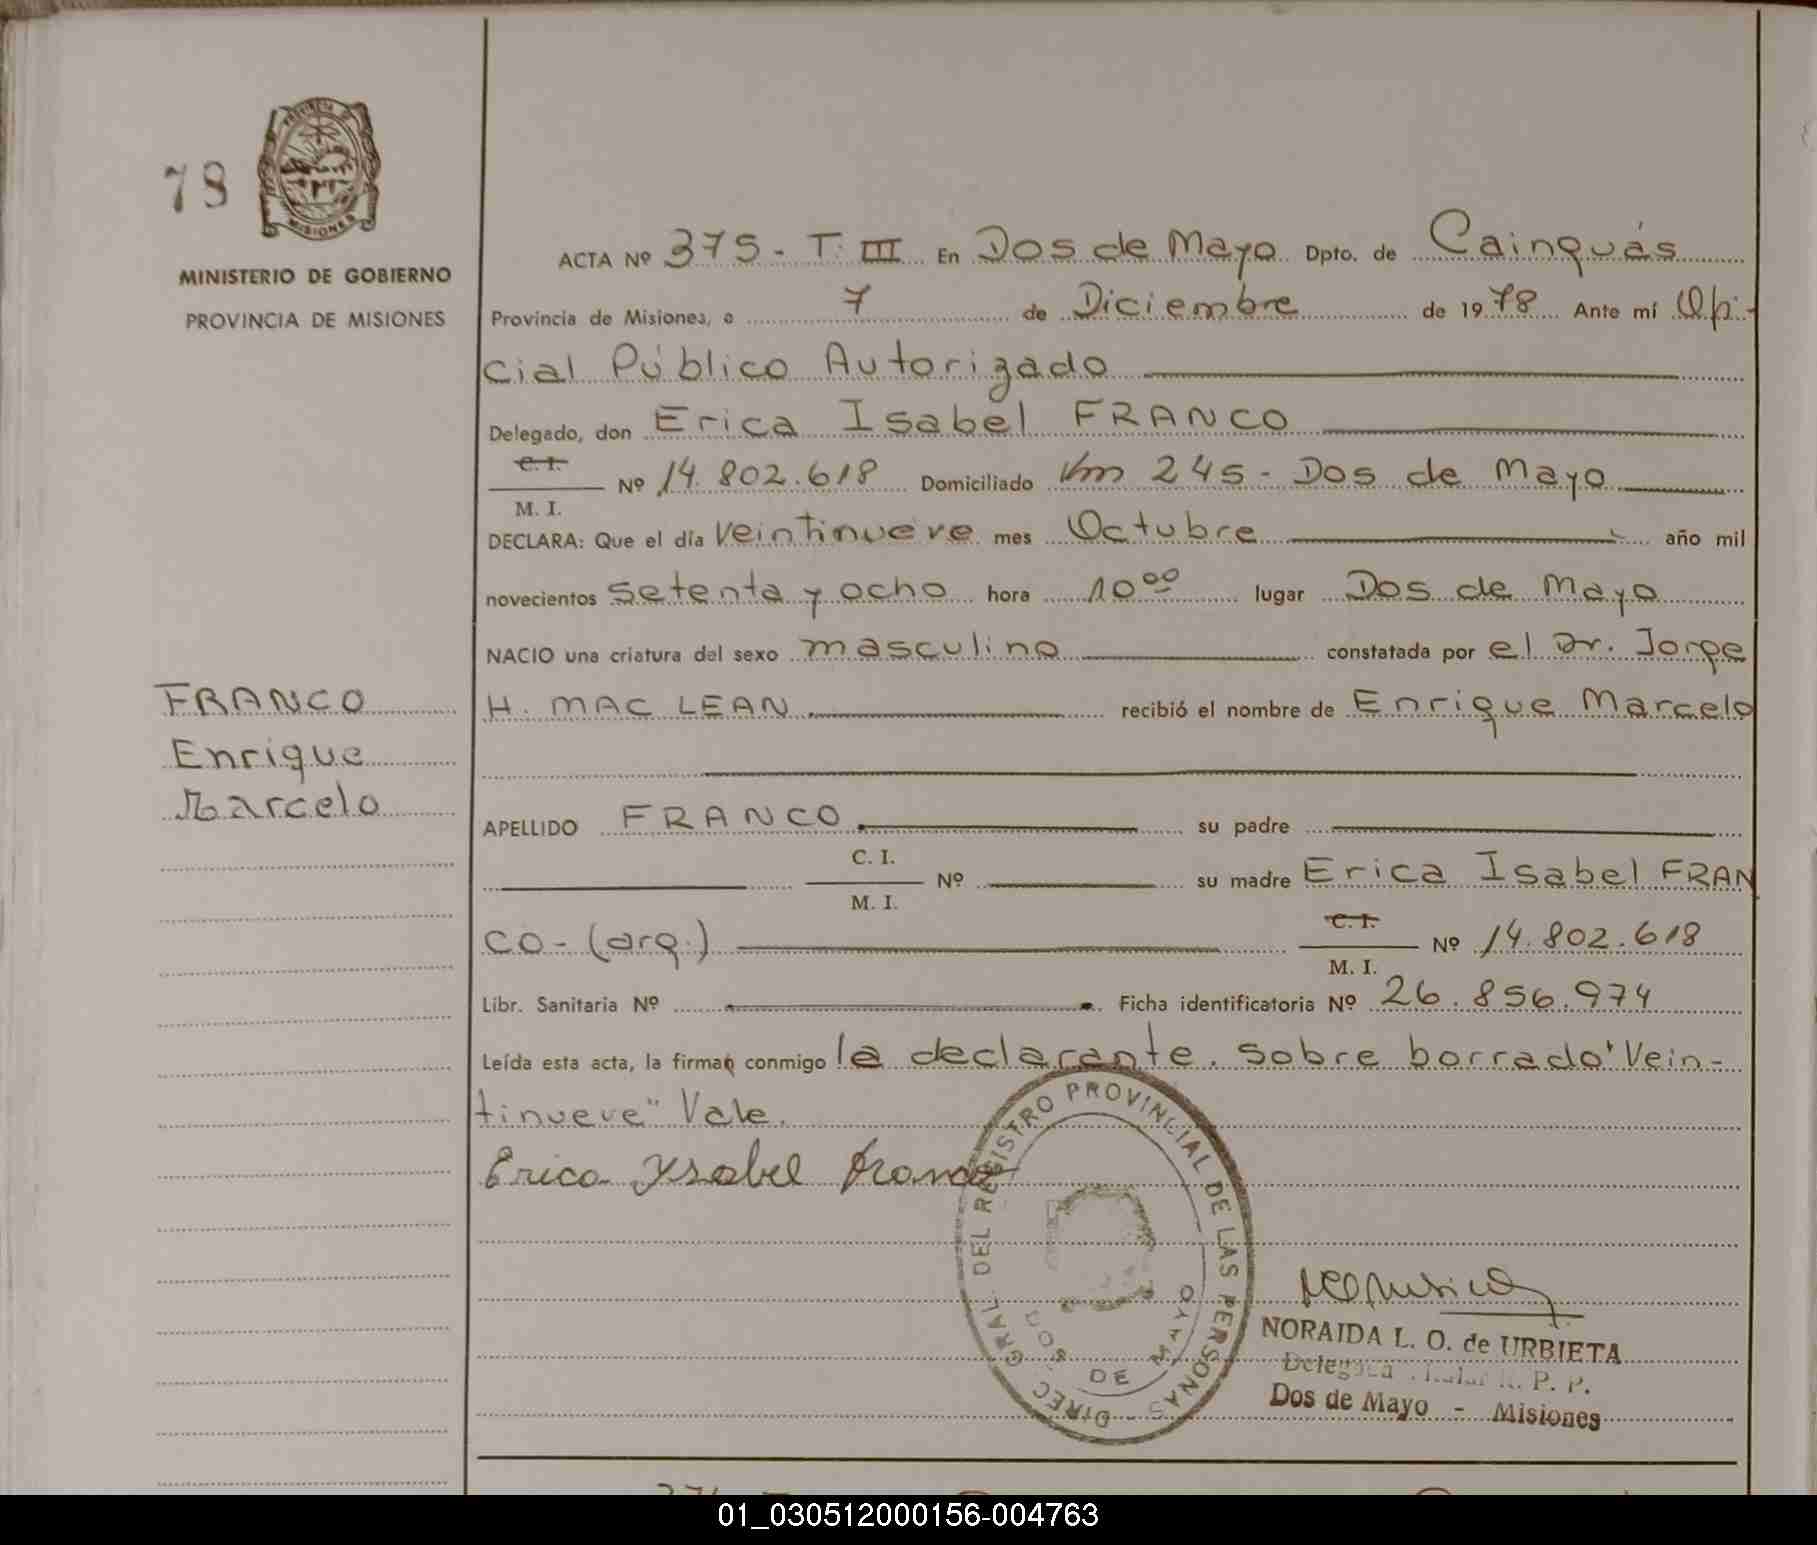 78
PROVINCIA DE
MISIONES
MINISTERIO DE GOBIERNO
PROVINCIA DE MISIONES
FRANCO
Enrique
Marcelo
ACTA Nº 375 - T. III En Dos de Mayo Dpto. de Cainguás
Provincia de Misiones, a 7 de Diciembre de 1978 Ante mí Ofi-
cial Público Autorizado
Delegado, don Erica Isabel FRANCO
C. I.
M. I. Nº 14.802.618 Domiciliado Km 245 - Dos de Mayo
DECLARA: Que el día veintinueve mes Octubre año mil
novecientos setenta y ocho hora 10⁰⁰ lugar Dos de Mayo
NACIO una criatura del sexo masculino constatada por el Dr. Jorge
H. MAC LEAN recibió el nombre de Enrique Marcelo
APELLIDO FRANCO su padre
C. I.
M. I. Nº su madre Erica Isabel FRAN
CO - (arg.) C. I.
M. I. Nº 14.802.618
Libr. Sanitaria Nº Ficha identificatoria Nº 26.856.974
Leída esta acta, la firman conmigo la declarante. Sobre borrado "Vein-
tinueve" Vale.
Erica Ysabel Franco
DIREC. GRAL. DEL REGISTRO PROVINCIAL DE LAS PERSONAS
DOS DE MAYO
NORAIDA L. O. de URBIETA
Delegada R. P. P.
Dos de Mayo - Misiones
01_030512000156-004763